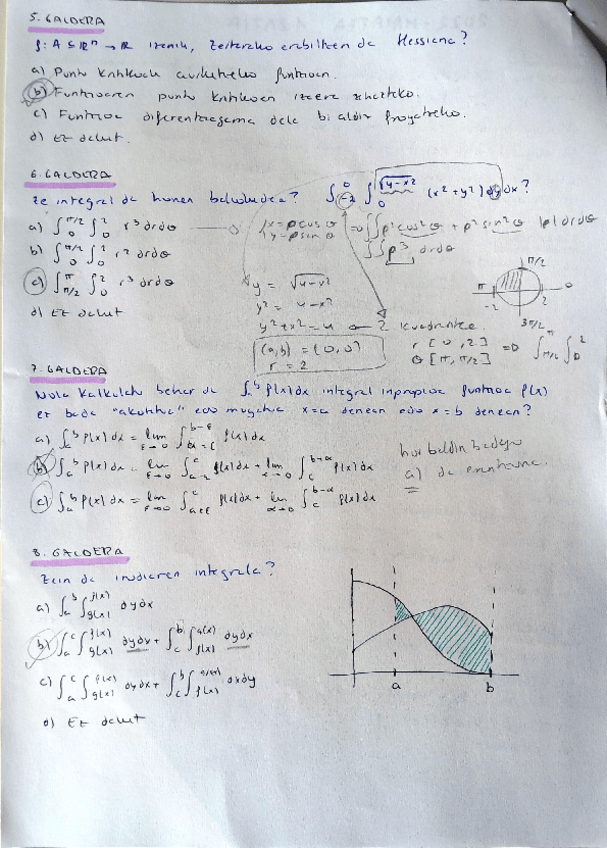 5. GALDERA
f: A ⊆ ℝⁿ → ℝ izanik, zertarako erabiltzen da Hessiana?
a) Puntu kritikoak aurkitzeko funtzioan.
b) Funtzioaren puntu kritikoen izaera zehazteko.
c) Funtzioa diferentziagarria dela bi aldiz frogatzeko.
d) Ez dakit.
6. GALDERA
Ze integral da honen baliokidea? ∫₋₂⁰ ∫₀^√(4-x²) (x²+y²) dy dx?
a) ∫₀^π/2 ∫₀² r³ dr dθ
b) ∫₀^π/2 ∫₀² r² dr dθ
c) ∫_π/2^π ∫₀² r³ dr dθ
d) Ez dakit
{x = ρ cos θ
y = ρ sin θ
=> ∫∫ ρ² cos² θ + ρ² sin² θ |ρ| dr dθ
∫∫ ρ³ dr dθ
y = √4-x²
y² = 4-x²
y²+x² = 4
(a,b) = (0,0)
r = 2
2. kuadrantea
r [0,2]
θ [π, π/2]
=> ∫_π/2^π ∫₀²
π/2
π
0
-2
2
3π/2
7. GALDERA
Nola kalkulatu behar da ∫ₐᵇ f(x)dx integral inpropioa funtzioa f(x)
ez bada "akotatua" edo mugatua x=a denean edo x=b denean?
a) ∫ₐᵇ f(x)dx = lim ε→0 ∫ b-ε f(x)dx
b) ∫ₐᵇ f(x)dx = lim ε→0 ∫ᶜ f(x)dx + lim α→0 ∫_c^b-α f(x)dx
c) ∫ₐᵇ f(x)dx = lim ε→0 ∫_a+ε^c f(x)dx + lim α→0 ∫_c^b-α f(x)dx
hor baldin badago
a) da erantzuna.
8. GALDERA
Zein da irudiaren integrala?
a) ∫ₐᵇ ∫_g(x)^f(x) dy dx
b) ∫ₐᶜ ∫_g(x)^f(x) dy dx + ∫_c^b ∫_f(x)^g(x) dy dx
c) ∫ₐᶜ ∫_g(x)^f(x) dy dx + ∫_c^b ∫_f(x)^g(x) dx dy
d) Ez dakit
a
b